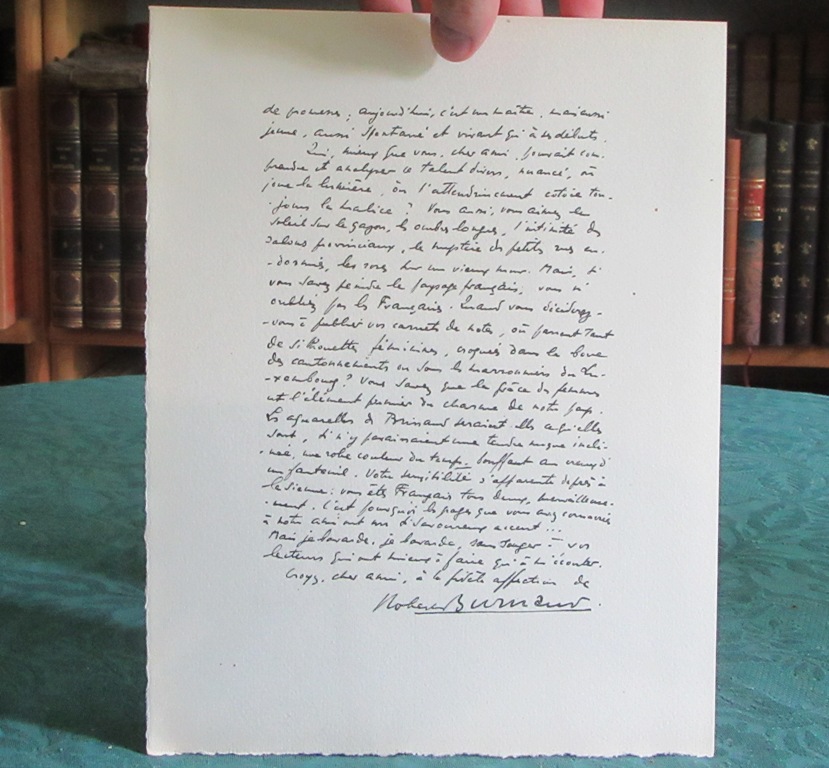 de promesses ; aujourd'hui, c'est un maître, mais aussi
jeune, aussi spontané et vivant qu'à ses débuts.
Qui, mieux que vous, cher ami, pouvait com-
prendre et analyser ce talent divers, nuancé, où
joue la lumière, où l'attendrissement côtoie tou-
jours la malice ? Vous aussi, vous aimez le
soleil sur le gazon, les ombres longues, l'intimité des
salons provinciaux, le mystère des petites rues en-
-dormies, les roses sur un vieux mur. Mais, si
vous savez peindre le paysage français, vous n'
oubliez pas les Françaises. Quand vous déciderez-
-vous à publier vos carnets de notes, où passent tant
de silhouettes féminines, croquées dans la boue
des cantonnements ou sous les marronniers du Lu-
-xembourg ? Vous savez que la grâce des femmes
est l'élément premier du charme de notre pays.
Les aquarelles de Brissaud seraient-elles ce qu'elles
sont, s'il n'y paraissaient une tendre nuque incli-
-née, une robe couleur du temps, bouffant au creux d'
un fauteuil. Votre sensibilité s'apparente de près à
la sienne : vous êtes Français tous deux, merveilleuse-
-ment. C'est pourquoi les pages que vous avez consacrées
à notre ami ont un si savoureux accent ...
Mais je bavarde, je bavarde, sans songer à vos
lecteurs qui ont mieux à faire qu'à m'écouter.
Croyez, cher ami, à la fidèle affection de
Robert Burnand.